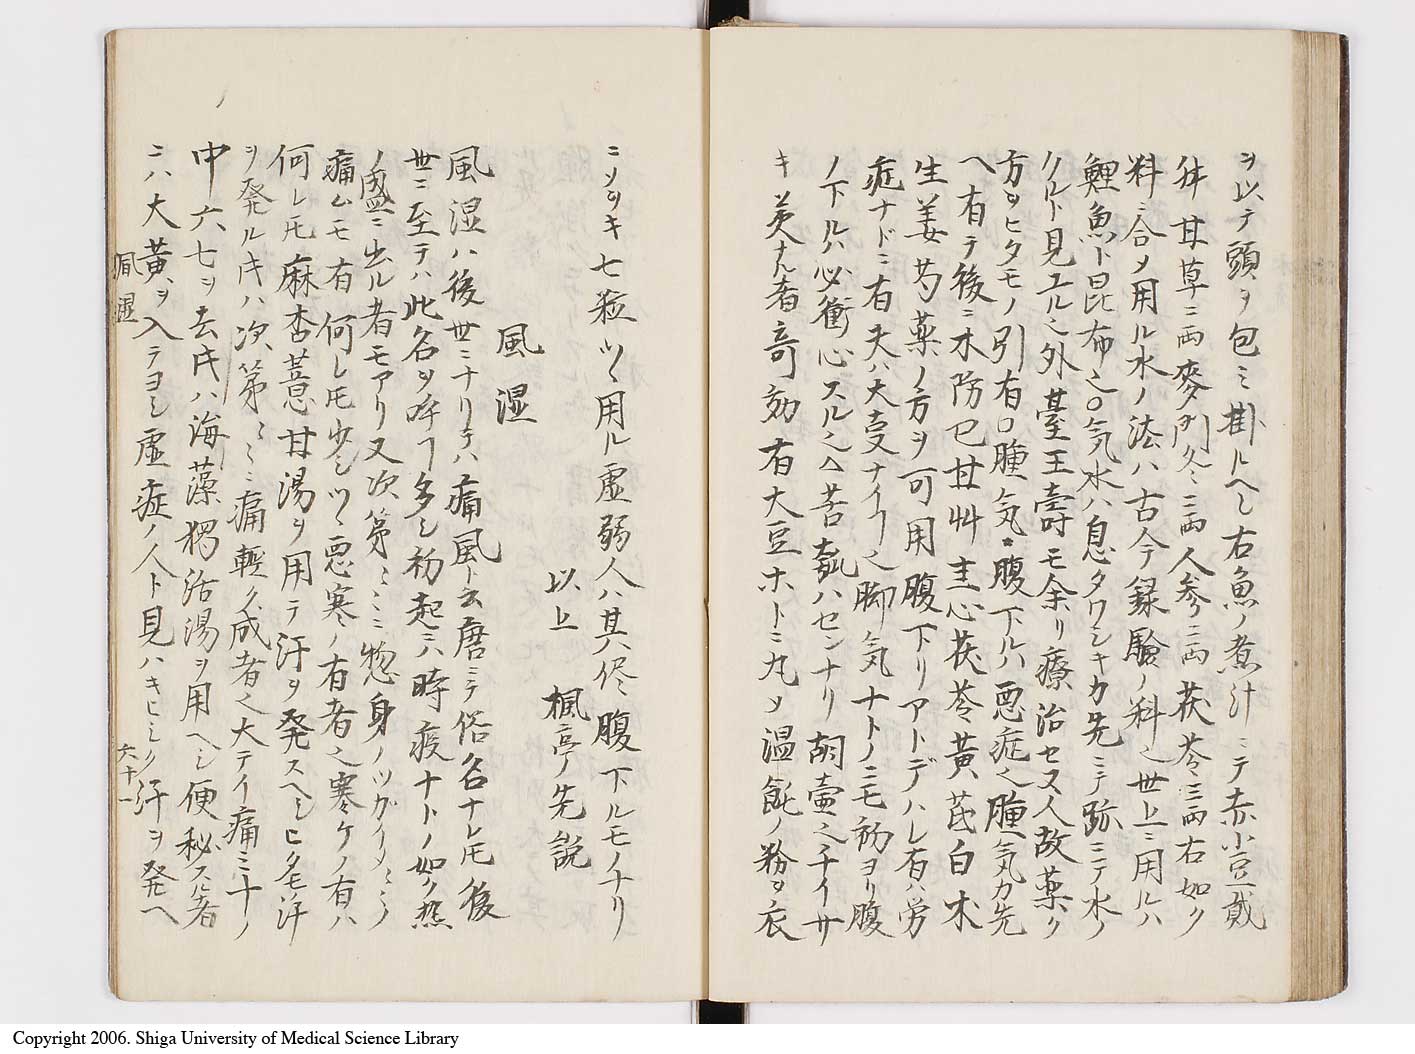 ヲ以テ頭ヲ包ミ掛ルヘシ右魚ノ煮汁ニテ赤小豆貮
舛甘草二両麥門冬二両人参二両茯苓三両右如ク
料ニ合ソ用ル水ノ法ハ古今録験ノ科之世上ニ用ルハ
鯉魚ト昆布之○気水ハ息タワシキカ先ニテ跡ニテ水ノ
クルト見エル之外臺王壽モ余リ療治セヌ人故薬ク
方ヲヒタモノ引有○腫気腹下ルハ悪症之腫気カ先
ヘ有テ後ニ木防已甘艸主心茯苓黄芪白朮
生姜芍薬ノ方ヲ可用腹下リアトデハレ有ハ労
症ナドニ有夫ハ大事ナイヿ之脚気ナトノニモ初ヨリ腹
ノ下ルハ必衝心スル之△苦瓠ハセンナリ胡壷之チイサ
キ美ナル者奇効有大豆ホトニ丸ソ温飩ノ粉ヲ衣
ニソヲキ七粒ツヽ用ル虚弱人ハ其侭腹下ルモノナリ
以上 楓亭ノ先説
風湿
風湿ハ後世ニナリテハ痛風ト云唐ニテ俗名ナレ𪜈後
世ニ至テハ此名ヲ呼ヿ多シ初起ニハ時疫ナトノ如ク熱
ノ盛ニ出ル者モアリ又次第ミミニ惣身ノツガイメミミノ
痛ムモ有何レ𪜈少シツヽ悪寒ノ有者之寒ケノ有ハ
何レ𪜈麻杏薏甘湯ヲ用テ汗ヲ発スヘシヒタモノ汗
ヲ発ルキハ次第ミミニ痛軽ク成者之大テイ痛ミ十ノ
中六七ヲ去キハ海藻獨活湯ヲ用ヘシ便秘スル者
ニハ大黄ヲ入テヨシ虚症ノ人ト見ハキヒシク汗ヲ発ヘ
風湿
六十一
Copyright 2006. Shiga University of Medical Science Library